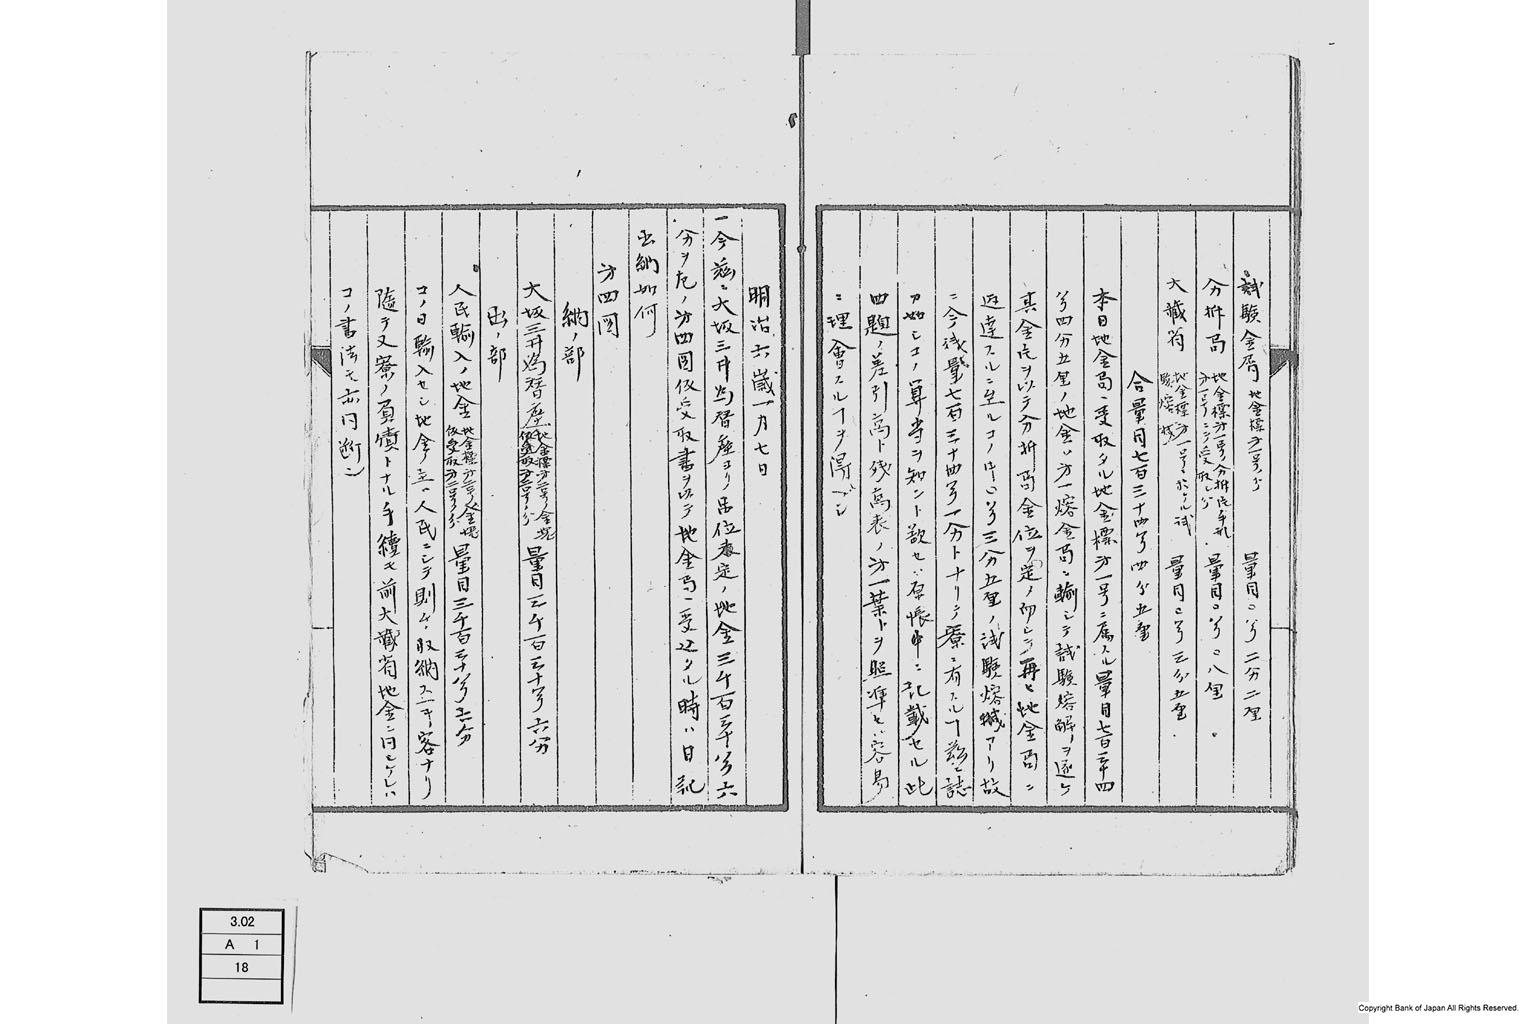 試験金屑 地金標第一号ノ分 量目〇匁二分二厘
分析局 地金標第一号ノ分析済手形
第一号ニテ受取シ分 量目〇匁〇八厘
大蔵省 地金標第一号ニ於ケル試
験熔減 量目〇匁三分五厘
合量目七百三十四匁四分五厘
本日地金局ニ受取タル地金標第一号ニ属スル量目七百三十四
匁四分五厘ノ地金ハ第一熔金局ニ輸シテ試験熔解ヲ遂ケ
其金片ヲ以テ分析局金位ヲ定メ而シテ再ヒ地金局ニ
返達スルニ至ルコノ中〇匁三分五厘ノ試験熔減アリ故
ニ今残量七百三十四匁一分トナリテ寮ニ有スルヿ茲ニ誌
ス如シコノ算当ヲ知ント欲セハ原帳中ニ記載セル此
四題ノ差引高ト残高表ノ第一葉トヲ照準セハ容易
ニ理會スルヿヲ得ベシ
明治六歳一月七日
一今茲ニ大坂三井為替座ヨリ品位未定ノ地金三千百三十匁六
分ヲ左ノ第四図仮受取書ヲ以テ地金局ニ受込タル時ハ日記
出納如何
第四図
納ノ部
大坂三井為替座 地金標第二号金塊
仮受取第二号ノ分 量目三千百三十匁六分
出ノ部
人民輸入ノ地金 地金標第二号金塊
仮受取第二号ノ分 量目三千百三十匁六分
コノ日輸入セシ地金主ハ人民ニシテ則チ収納スヘキ客ナリ
随テ又寮ノ負債トナル手續モ前大蔵省地金ニ同シケレハ
コノ書法モ亦同断シ
3.02
A 1
18
Copyright Bank of Japan All Rights Reserved.